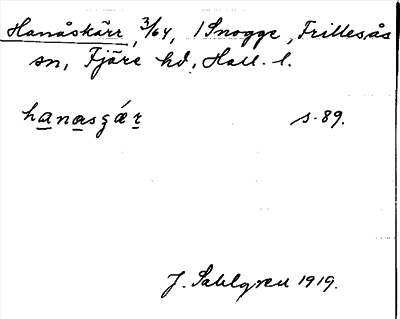 Hanåskärr, 3/64, 1 Snogge, Frillesås
sn, Fjäre hd, Hall. l.
hanasgǽr s. 89.
J. Sahlgren 1919.